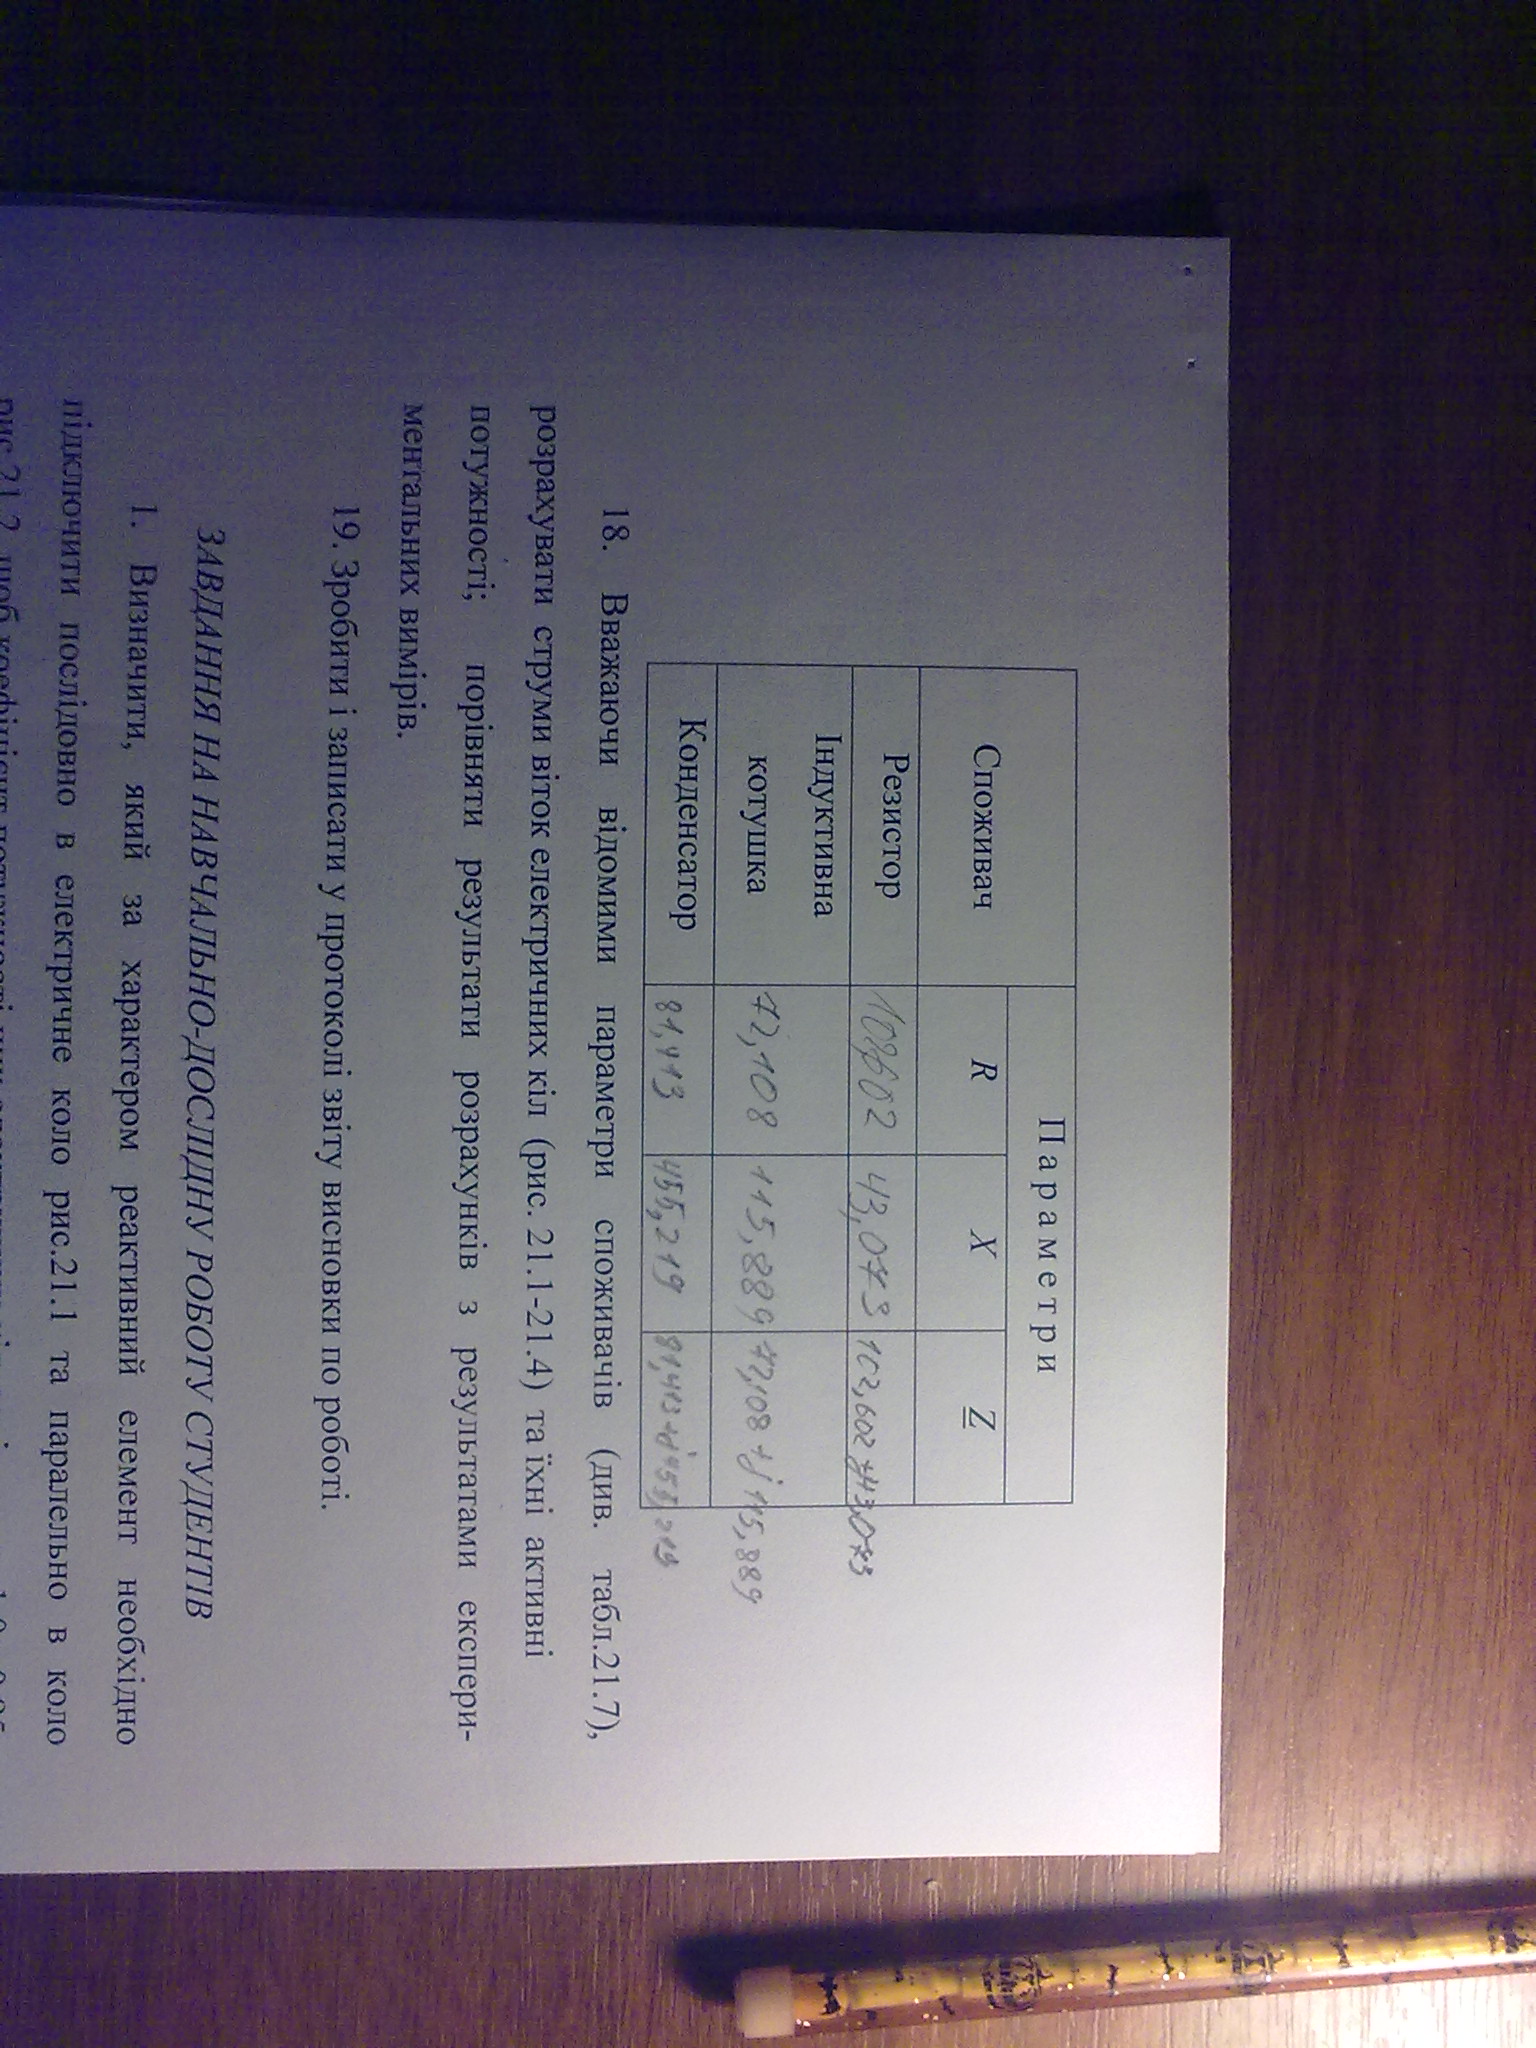 Споживач Параметри
R X Z
Резистор 102,602 43,073 102,602+j43,073
Індуктивна
котушка 72,108 115,889 72,108+j115,889
Конденсатор 81,413 455,219 81,413+j455,219
18. Вважаючи відомими параметри споживачів (див. табл.21.7),
розрахувати струми віток електричних кіл (рис. 21.1-21.4) та їхні активні
потужності; порівняти результати розрахунків з результатами експери-
ментальних вимірів.
19. Зробити і записати у протоколі звіту висновки по роботі.
ЗАВДАННЯ НА НАВЧАЛЬНО-ДОСЛІДНУ РОБОТУ СТУДЕНТІВ
1. Визначити, який за характером реактивний елемент необхідно
підключити послідовно в електричне коло рис.21.1 та паралельно в коло
рис.21.2, щоб коефіцієнт потужності